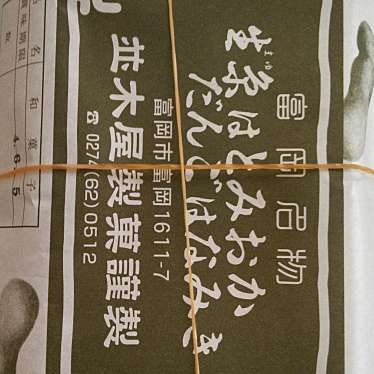 富岡名物
生糸はとみおか
だんごはなみき
富岡市富岡1611-7
並木屋製菓謹製
☎0274(62)0512
名 和菓子
味期限 4.6.5
数